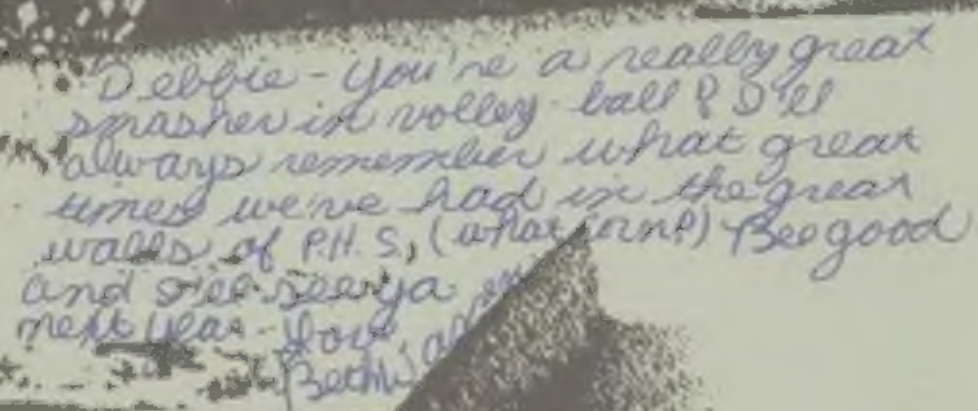 Debbie - You're a really great
smasher in volley ball & I'll
always remember what great
times we've had in the great
walls of P.H.S, (what corn!) Bee good
and I'll see ya
next year - Love